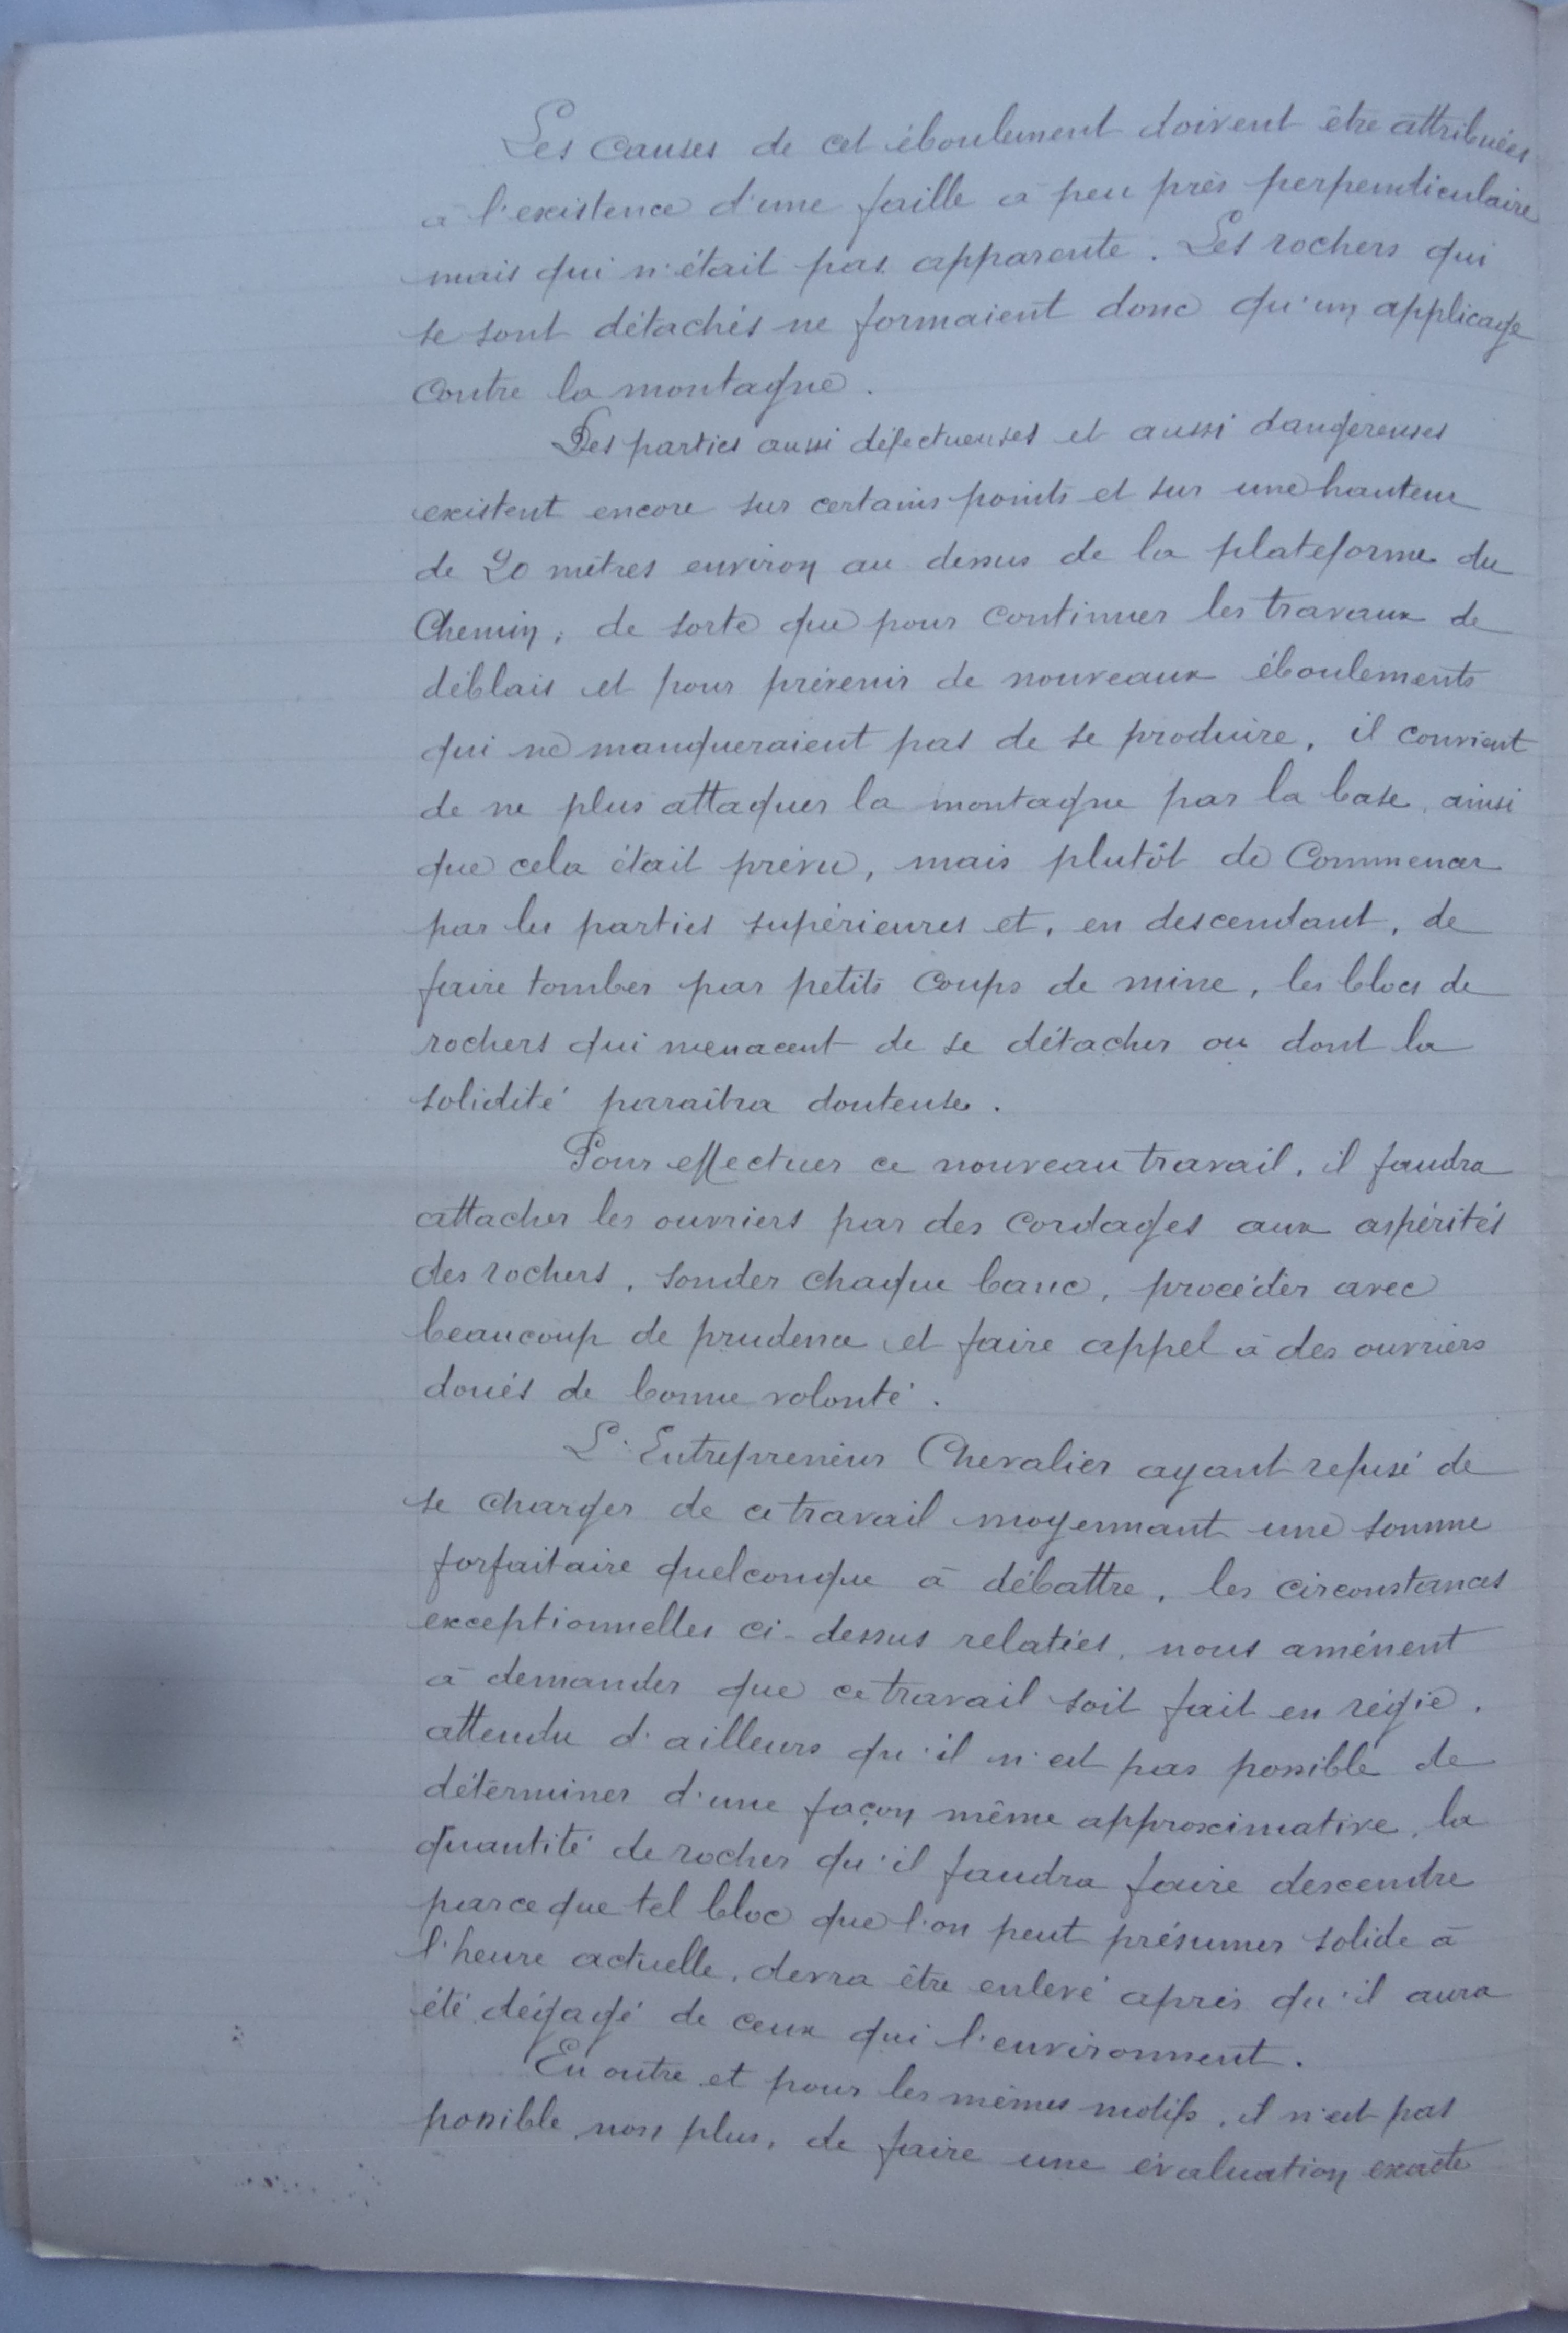 Les causes de cet éboulement doivent être attribuées
à l'existence d'une faille à peu près perpendiculaire
mais qui n'était pas apparente. Les rochers qui
se sont détachés ne formaient donc qu'un applicage
contre la montagne.
Des parties aussi défectueuses et aussi dangereuses
existent encore sur certains points et sur une hauteur
de 20 mètres environ au dessus de la plateforme du
Chemin, de sorte que pour continuer les travaux de
déblais et pour prévenir de nouveaux éboulements
qui ne manqueraient pas de se produire, il convient
de ne plus attaquer la montagne par la base, ainsi
que cela était prévu, mais plutôt de commencer
par les parties supérieures et, en descendant, de
faire tomber par petits coups de mine, les blocs de
rochers qui menacent de se détacher ou dont la
solidité paraîtra douteuse.
Pour effectuer ce nouveau travail, il faudra
attacher les ouvriers par des cordages aux aspérités
des rochers, sonder chaque banc, procéder avec
beaucoup de prudence et faire appel à des ouvriers
doués de bonne volonté.
L'Entrepreneur Chevalier ayant refusé de
se charger de ce travail moyennant une somme
forfaitaire quelconque à débattre, les circonstances
exceptionnelles ci-dessus relatées, nous amènent
à demander que ce travail soit fait en régie,
attendu d'ailleurs qu'il n'est pas possible de
déterminer d'une façon même approximative, la
quantité de rocher qu'il faudra faire descendre
parce que tel bloc que l'on peut présumer solide à
l'heure actuelle, devra être enlevé après qu'il aura
été dégagé de ceux qui l'environnent.
En outre et pour les mêmes motifs, il n'est pas
possible, non plus, de faire une évaluation exacte